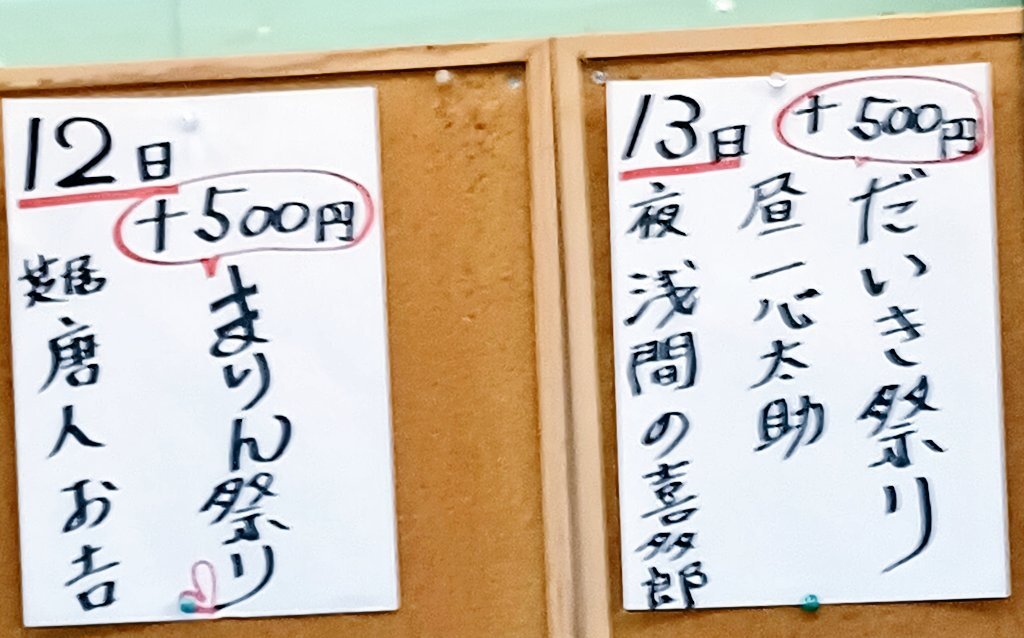 12日
+500円
まりん祭り
芝居
唐人お吉
13日
+500円
だいき祭り
昼 一心太助
夜 浅間の喜多郎